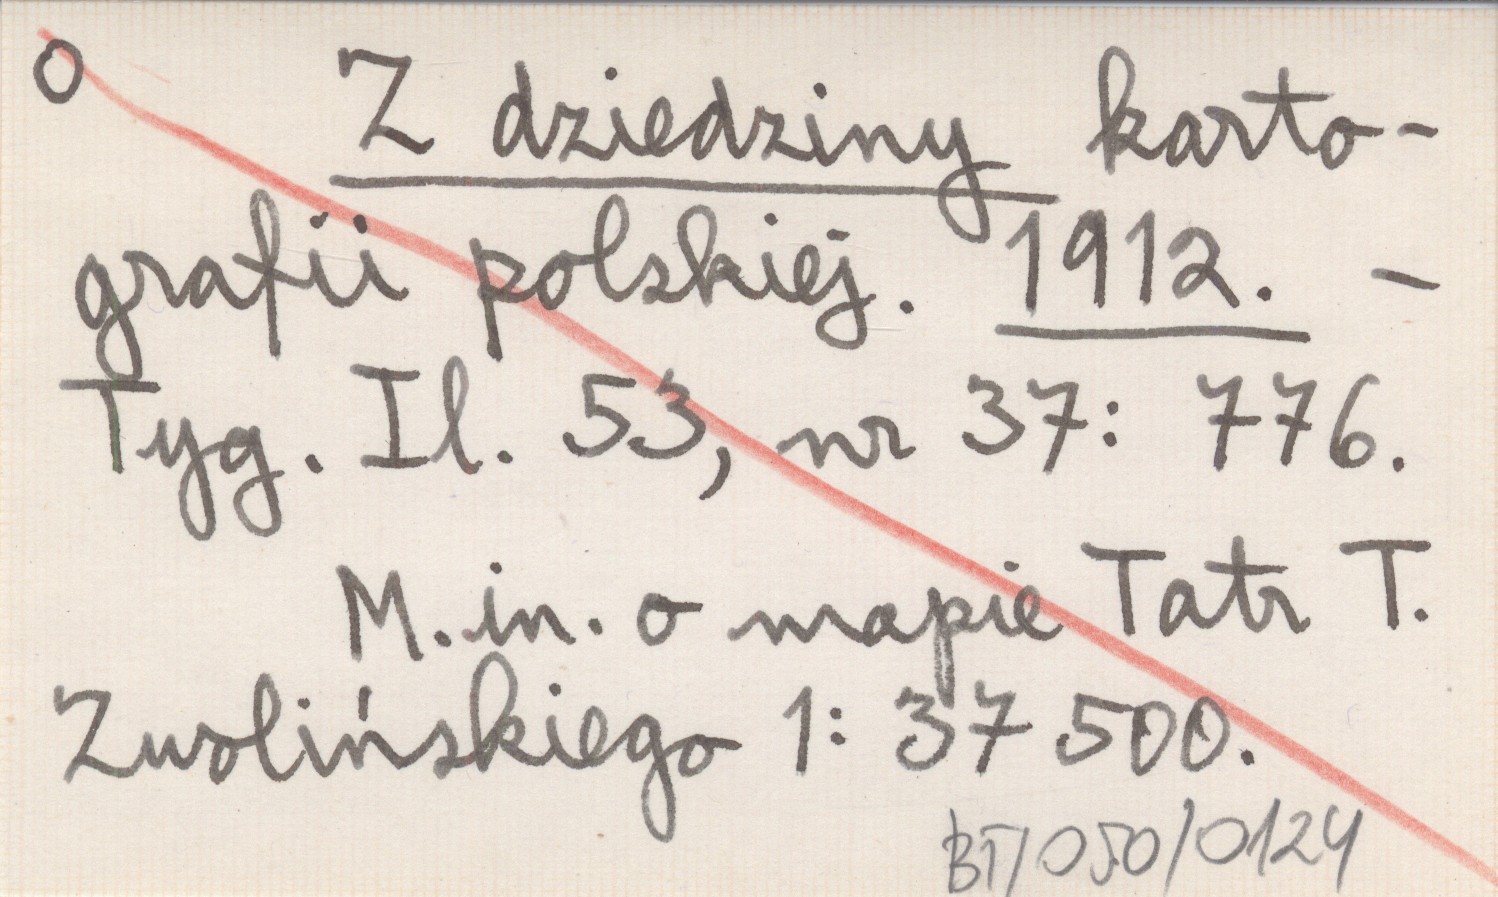 O Z dziedziny karto-
grafii polskiej. 1912. -
Tyg. Il. 53, nr 37: 776.
M. in. o mapie Tatr T.
Zwolińskiego 1: 37 500.
BT/050/0124